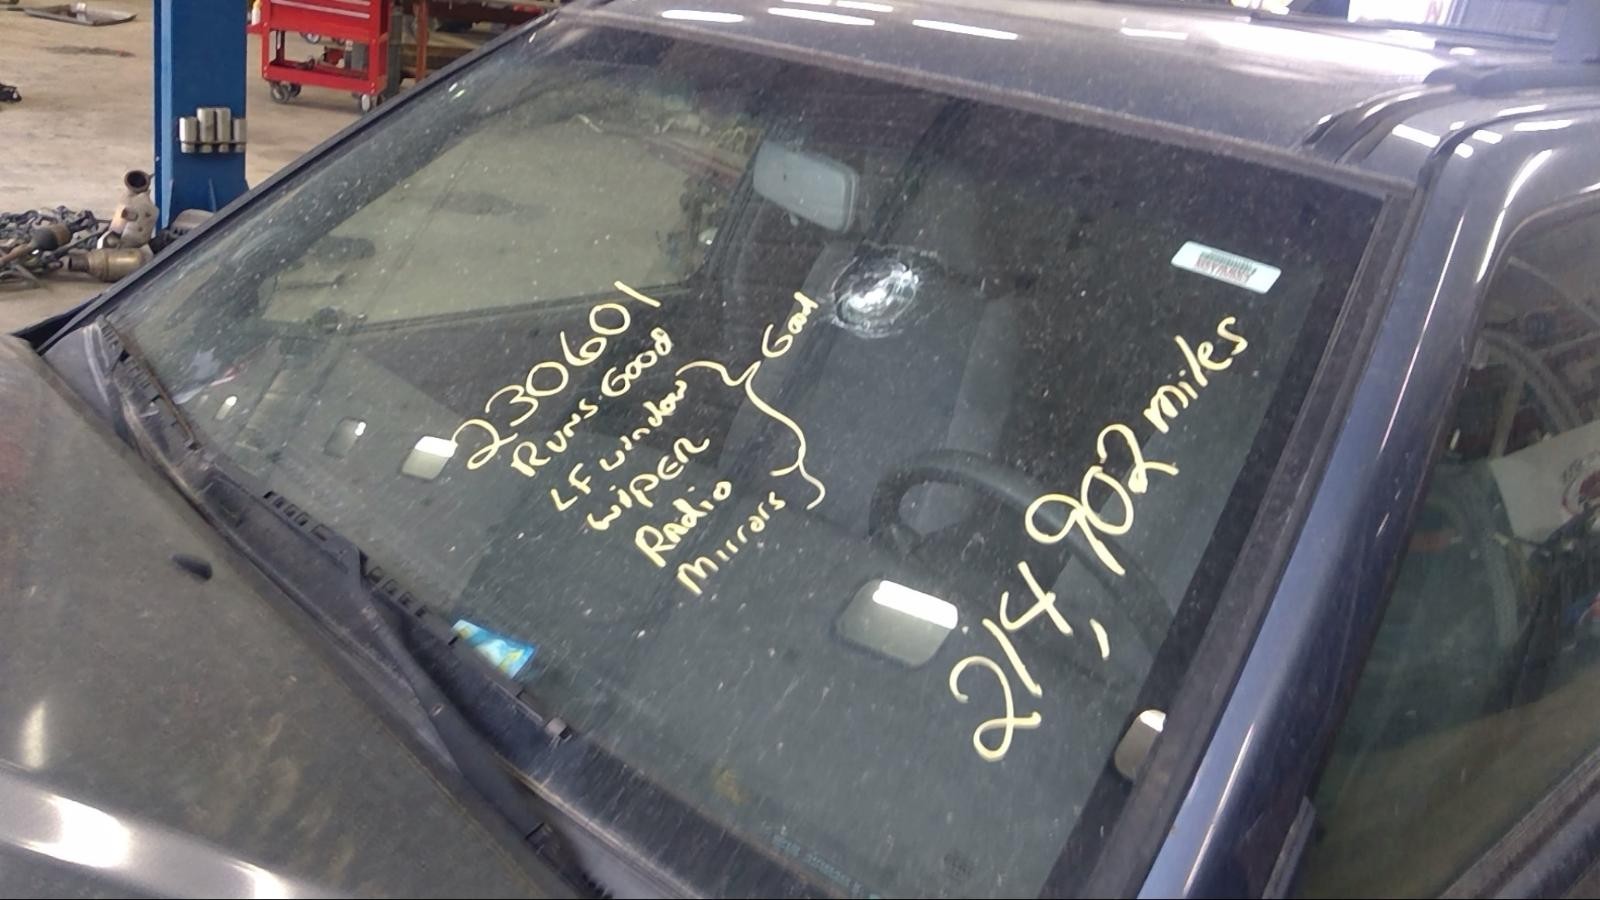 230601
Runs Good
LF window
wiper
Radio
Mirrors
Good
214,902 miles